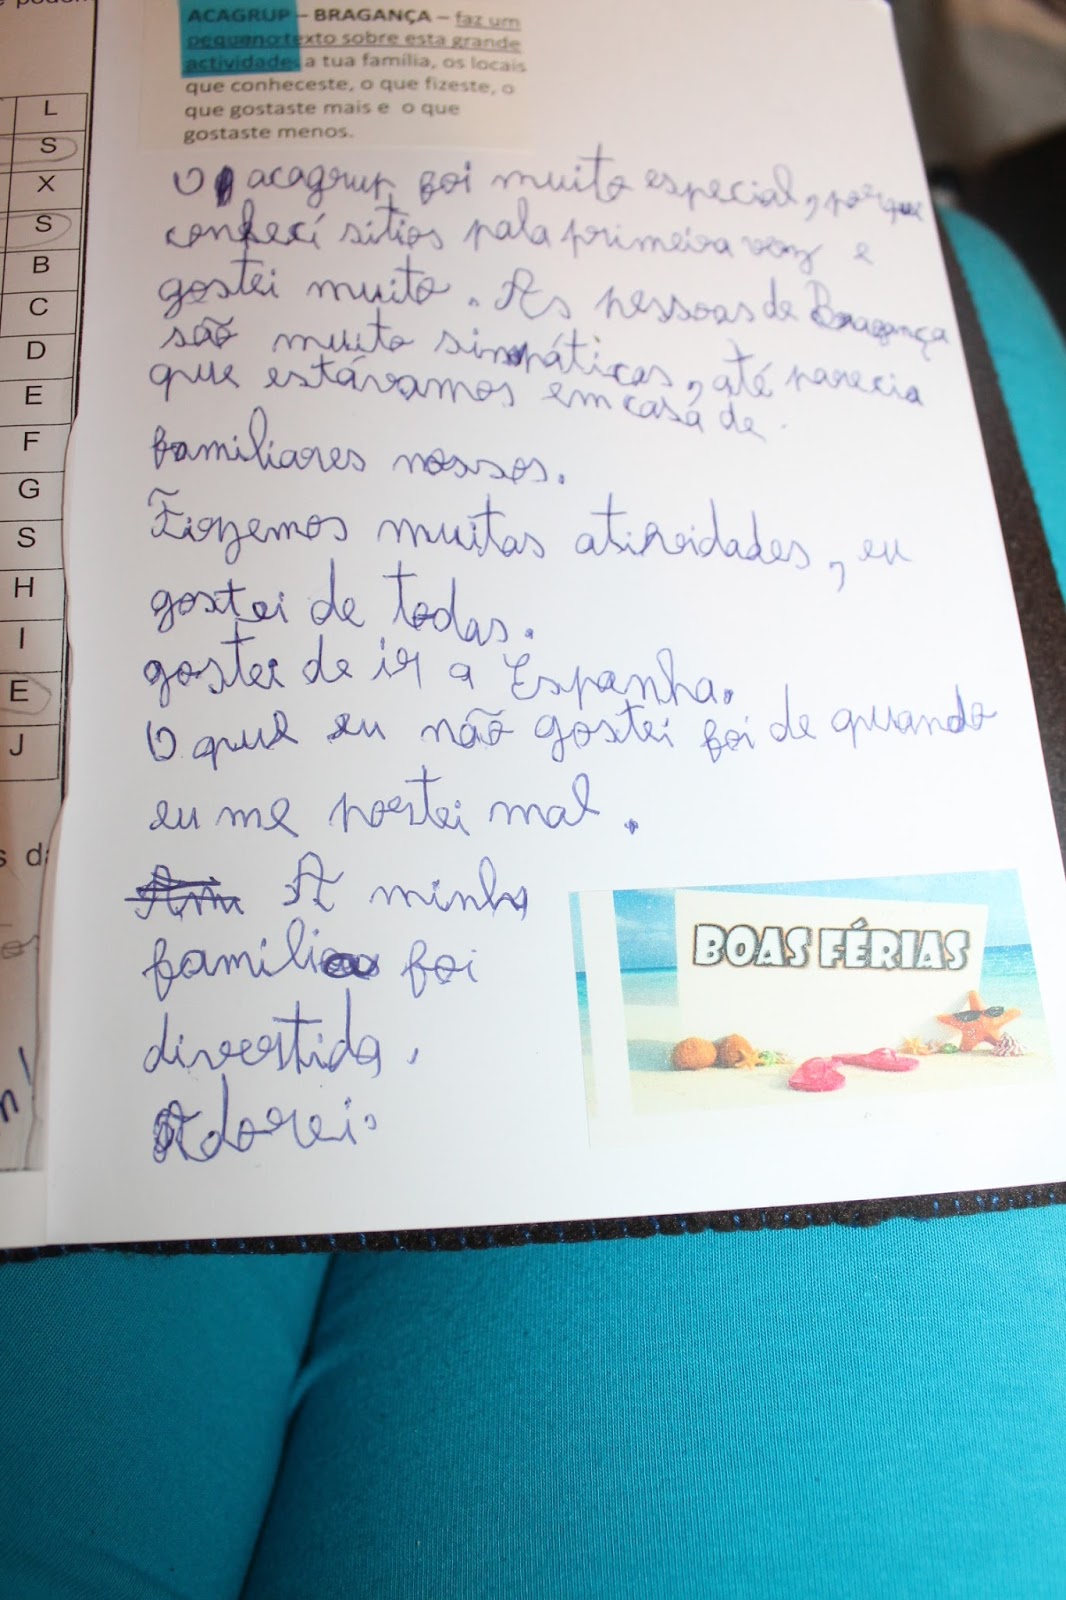 L
S
X
S
B
C
D
E
F
G
S
H
I
E
J
ACAGRUP – BRAGANÇA – faz um
pequeno texto sobre esta grande
actividade: a tua família, os locais
que conheceste, o que fizeste, o
que gostaste mais e o que
gostaste menos.
O acagrup foi muito especial, porque
conhecí sitios pala primeira vez e
gostei muito. As pessoas de Bragança
são muito simpáticas, até parecia
que estávamos em casa de
familiares nossos.
Fizemos muitas atividades, eu
gostei de todas.
gostei de ir a Espanha.
O que eu não gostei foi de quando
eu me portei mal.
A minha
familia foi
divertida.
Adorei.
BOAS FÉRIAS